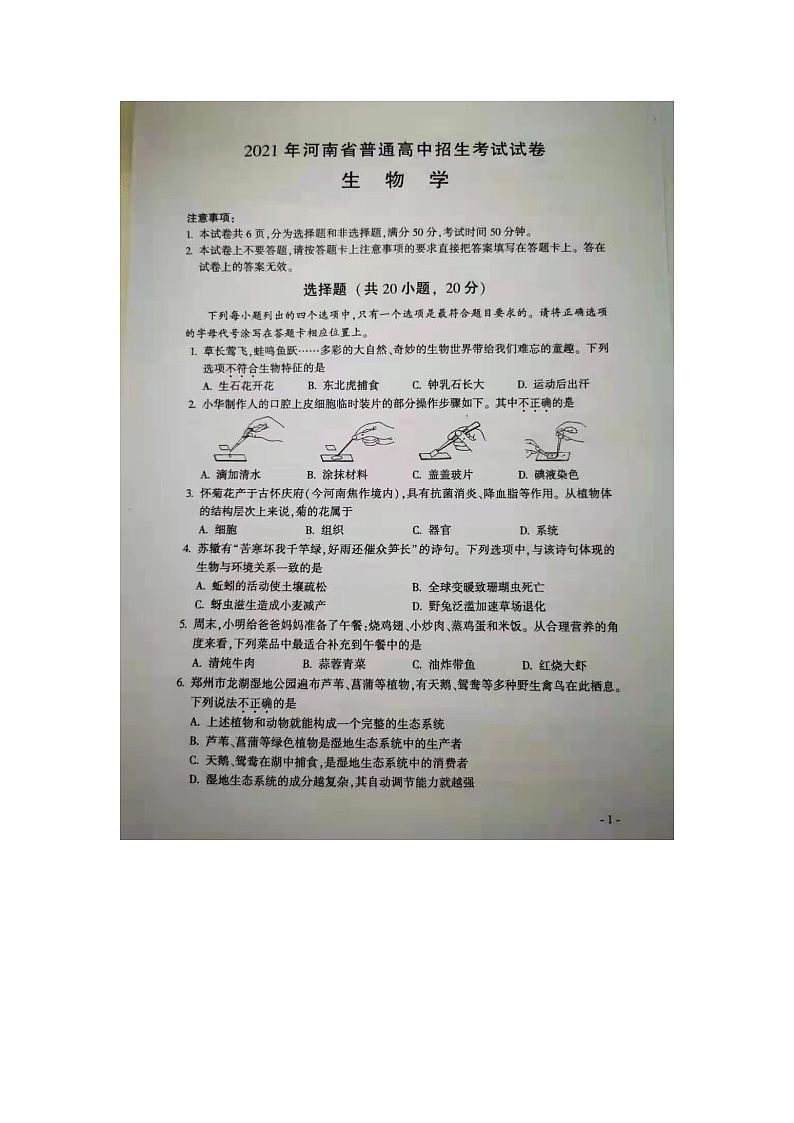 2021 年河南省普通高中招生考试试卷
生 物 学
注意事项：
1. 本试卷共 6 页，分为选择题和非选择题，满分 50 分，考试时间 50 分钟。
2. 本试卷上不要答题，请按答题卡上注意事项的要求直接把答案填写在答题卡上。答在
试卷上的答案无效。
选择题（共 20 小题，20 分）
下列每小题列出的四个选项中，只有一个选项是最符合题目要求的。请将正确选项
的字母代号涂写在答题卡相应位置上。
1. 草长莺飞，蛙鸣鱼跃……多彩的大自然、奇妙的生物世界带给我们难忘的童趣。下列
选项不符合生物特征的是
A. 生石花开花 B. 东北虎捕食 C. 钟乳石长大 D. 运动后出汗
2. 小华制作人的口腔上皮细胞临时装片的部分操作步骤如下。其中不正确的是
A. 滴加清水 B. 涂抹材料 C. 盖盖玻片 D. 碘液染色
3. 怀菊花产于古怀庆府（今河南焦作境内），具有抗菌消炎、降血脂等作用。从植物体
的结构层次上来说，菊的花属于
A. 细胞 B. 组织 C. 器官 D. 系统
4. 苏辙有“苦寒坏我千竿绿，好雨还催众笋长”的诗句。下列选项中，与该诗句体现的
生物与环境关系一致的是
A. 蚯蚓的活动使土壤疏松 B. 全球变暖致珊瑚虫死亡
C. 蚜虫滋生造成小麦减产 D. 野兔泛滥加速草场退化
5. 周末，小明给爸爸妈妈准备了午餐：烧鸡翅、小炒肉、蒸鸡蛋和米饭。从合理营养的角
度来看，下列菜品中最适合补充到午餐中的是
A. 清炖牛肉 B. 蒜蓉青菜 C. 油炸带鱼 D. 红烧大虾
6. 郑州市龙湖湿地公园遍布芦苇、菖蒲等植物，有天鹅、鸳鸯等多种野生禽鸟在此栖息。
下列说法不正确的是
A. 上述植物和动物就能构成一个完整的生态系统
B. 芦苇、菖蒲等绿色植物是湿地生态系统中的生产者
C. 天鹅、鸳鸯在湖中捕食，是湿地生态系统中的消费者
D. 湿地生态系统的成分越复杂，其自动调节能力就越强
- 1 -